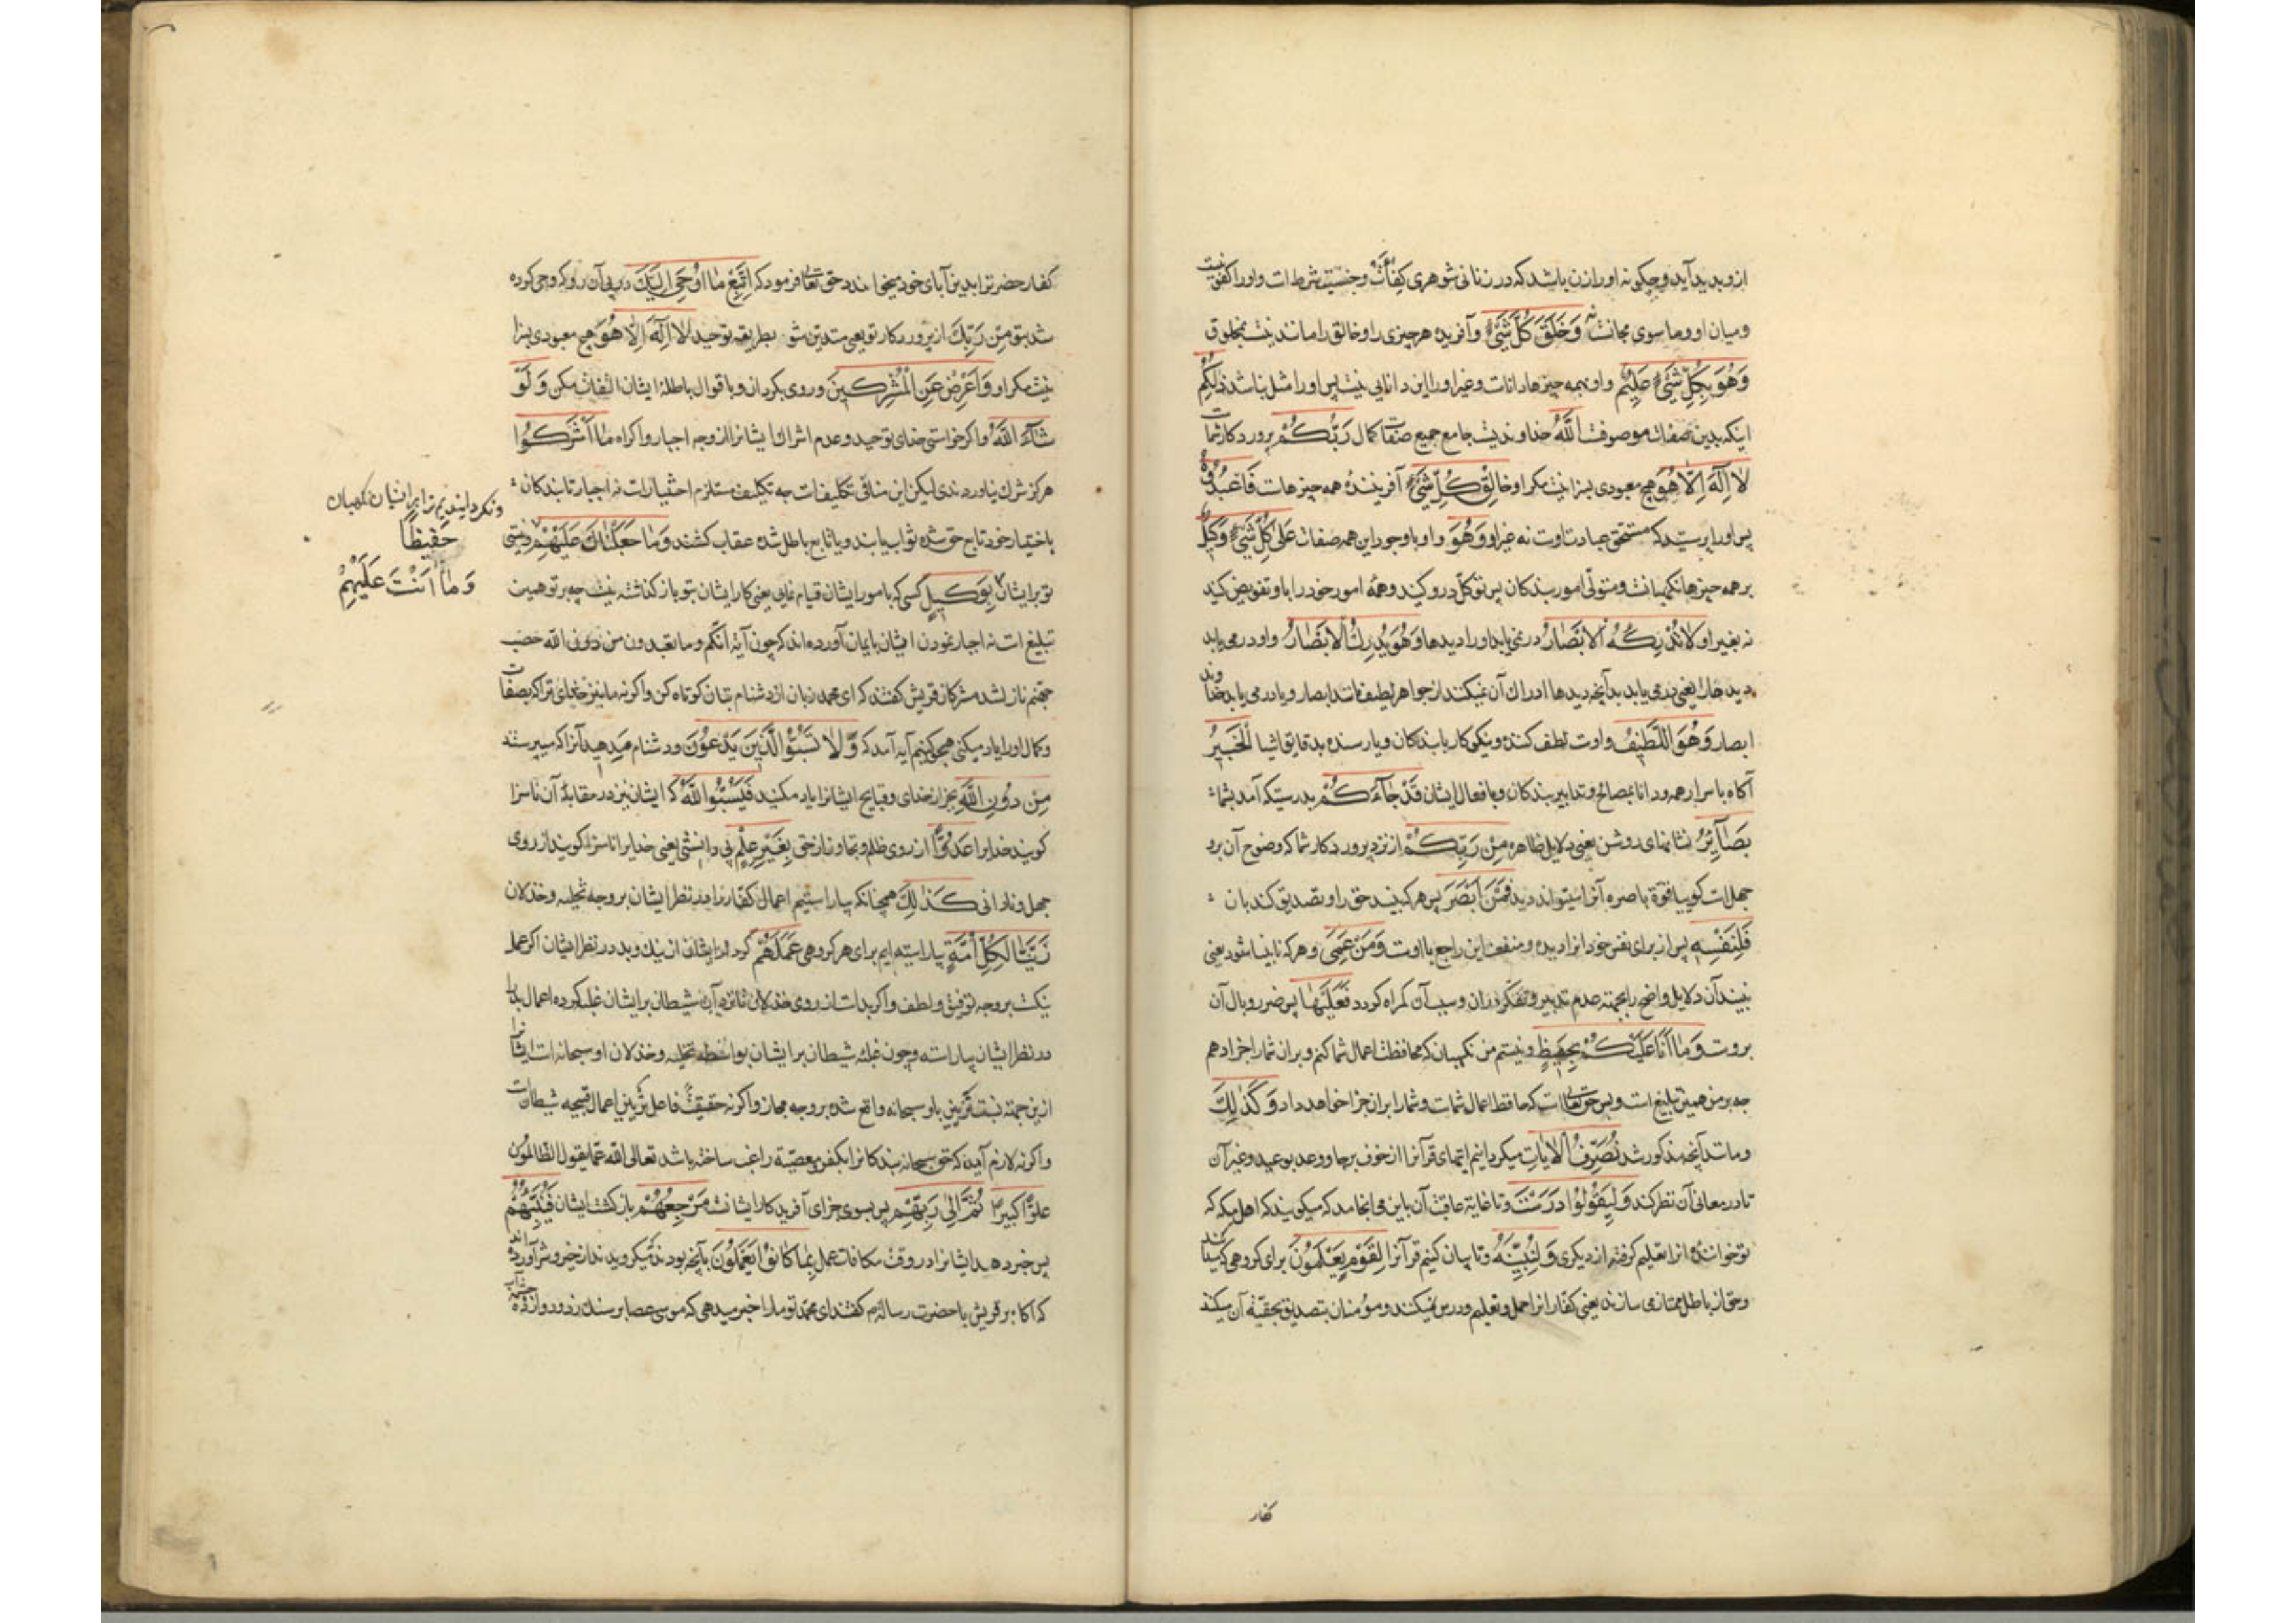 ازو پدید آید و چگونه او را زن باشد که در زنانی شوهری کفأت و جنسیة شرط است و او را کفو نیست
و میان او و ما سوی مجانست نه وَخَلَقَ كُلَّ شَيْءٍ و آفریده هر چیزی را و خالق را مانند نیست بمخلوق
وَهُوَ بِكُلِّ شَيْءٍ عَلِيمٌ و او بهمه چیزها داناست و غیر او را این دانایی نیست پس او را مثل نباشد ذٰلِكُمُ
اینکه بدین صفات موصوفست اللّٰهُ خداوندیست جامع جمیع صفات کمال رَبُّكُمْ پروردکار شماست
لَا اِلٰهَ اِلَّا هُوَ هیچ معبودی بسزا نیست مکر او خَالِقُ كُلِّ شَيْءٍ آفریننده همه چیزهاست فَاعْبُدُوهُ
پس او را پرستید که مستحق عبادت اوست نه غیر او وَهُوَ و او با وجود این همه صفات عَلٰى كُلِّ شَيْءٍ وَكِيلٌ
بر همه چیزها نکهبانست و متولی امور بندکان پس توکل درو کنید و همه امور خود را باو تفویض کنید
نه بغیر او لَا تُدْرِكُهُ الْاَبْصَارُ در نمی یابد او را دیدها وَهُوَ يُدْرِكُ الْاَبْصَارَ و او در می یابد
دیدها را یعنی در می یابد بدآنچه دیدها ادراك آن نمیکنند از جواهر لطیف مانند ابصار و یا در می یابد خداوند
ابصار وَهُوَ اللَّطِيفُ و اوست لطف کننده و نیکوکار با بندکان و یا رسنده بدقایق اشیا الْخَبِيرُ
آکاه باسرار همه و دانا بمصالح و تدابیر بندکان و بافعال ایشان قَدْ جَآءَكُمْ بدرستیکه آمد بشما
بَصَآئِرُ نشانهای روشن یعنی دلایل ظاهره مِنْ رَبِّكُمْ از نزد پروردکار شما که وضوح آن برو
جهلات کوییا قوة باصره آنرا میتواند دید فَمَنْ اَبْصَرَ پس هر که بیند حق را و تصدیق کند بان
فَلِنَفْسِهِ پس از برای نفس خود انرا دیده و منفعت این راجع باوست وَمَنْ عَمِيَ و هر که نابینا شود یعنی
نبیند آن دلایل واضح را بجهته عدم تدبیر و تفکر در ان و بسبب آن کمراه کردد فَعَلَيْهَا پس ضرر و بال آن
بروست وَمَا اَنَا عَلَيْكُمْ بِحَفِيظٍ و نیستم من نکهبان که محافظت اعمال شما کنم و بر ان شما را جزا دهم
چه بر من همین تبلیغ است و بس حق تعالی است که حافظ اعمال شماست و شما را بران جزا خواهد داد وَكَذٰلِكَ
و مانند آنچه مذکور شد نُصَرِّفُ الْاٰيَاتِ میکردانیم ایتهای قرآنرا از خوف برجا و وعد بوعید و غیر آن
تا در معانی آن نظر کنند وَلِيَقُولُوا دَرَسْتَ و تا غایة عاقبت آن باین می انجامد که میکویند که اهل مکه که
تو خوانده انرا تعلیم کرفته از دیکری وَلِنُبَيِّنَهُ و تا بیان کنیم قرآنرا لِقَوْمٍ يَعْلَمُونَ برای کروهی که بدانند
و حق از باطل ممتاز می سازند یعنی کفار انرا حمل و تعلیم و درس میکنند و مؤمنان بتصدیق بحقیة آن میکنند
کفار
کفار حضرترا بدین آبای خود میخواندند حق تعالی فرمود که اِتَّبِعْ مَا اُوحِيَ اِلَيْكَ در پی آن رو که وحی کرده
شد بتو مِنْ رَبِّكَ از پروردکار تو یعنی متدین شو بطریقه توحید لَا اِلٰهَ اِلَّا هُوَ هیچ معبودی بسزا
نیست مکر او وَاَعْرِضْ عَنِ الْمُشْرِكِينَ و روی بکردان و باقوال باطله ایشان التفات مکن وَلَوْ
شَآءَ اللّٰهُ و اکر خواستی خدای توحید و عدم اشراك ایشانرا از وجه اجبار و اکراه مَا اَشْرَكُوا
هرکز شرك نیاوردندی لیکن این منافی تکلیفات چه تکلیف مستلزم اختیارات نه اجبار تا بندکان
باختیار خود تابع حق شده ثواب یابند و یا تابع باطل شده عقاب کشند وَمَا جَعَلْنَاكَ عَلَيْهِمْ و نیستی
تو بر ایشان بِوَكِيلٍ کسی که بامور ایشان قیام نمایی یعنی کار ایشان بتو باز کذاشته نیست چه بر تو همین
تبلیغ است نه اجبار نمودن ایشان بایمان آورده اند که چون آیة انکم و ما تعبدون من دون اللّٰه حصب
جهنم نازل شد مشرکان قریش کفتند که ای محمد زبان از دشنام بتان کوتاه کن و اکر نه ما نیز خدای ترا که بصفات
و کمال او را یاد میکنی هجو کنیم آیه آمد که وَلَا تَسُبُّوا الَّذِينَ يَدْعُونَ و دشنام مدهید آنرا که میپرستند
مِنْ دُونِ اللّٰهِ بجز از خدای و قبایح ایشانرا یاد مکنید فَيَسُبُّوا اللّٰهَ که ایشان نیز در مقابله آن ناسزا
کویند خدایرا عَدْوًا از روی ظلم و تجاوز از حق بِغَيْرِ عِلْمٍ بی دانشی یعنی خدایرا ناسزا کویند از روی
جهل و نادانی كَذٰلِكَ همچنانکه بیاراستیم اعمال کفار را در نظر ایشان بر وجه تخلیه و خذلان
زَيَّنَّا لِكُلِّ اُمَّةٍ بیاراسته ایم برای هر کروهی عَمَلَهُمْ کردار ایشان از نیك و بد در نظر ایشان اکر عمل
نیکست بر وجه توفیق و لطف و اکر بد است از روی خذلان تا نزد آن شیطان بر ایشان غلبه کرده اعمال بد را
در نظر ایشان بیاراسته و چون غلبه شیطان بر ایشان بواسطه تخلیه و خذلان او سبحانه است ایشانرا
ازین جهته نسبت تزیین باو سبحانه واقع شده بر وجه مجاز و اکر نه حقیقت فاعل تزیین اعمال قبیحه شیطانست
و اکر نه لازم آید که حق سبحانه بندکانرا بکفر و معصیة راغب ساخته باشد تعالی اللّٰه عما یقول الظالمون
علوًّا کبیرًا ثُمَّ اِلٰى رَبِّهِمْ پس بسوی جزای آفریدکار ایشانست مَرْجِعُهُمْ بازکشت ایشان فَيُنَبِّئُهُمْ
پس خبر دهد ایشانرا در وقت مکافات عمل بِمَا كَانُوا يَعْمَلُونَ بآنچه بودند که میکردند از خیر و شر آورده اند
که اکابر قریش با حضرت رسالة م کفتند ای محمد تو ما را خبر میدهی که موسی عصا بر سنك زد و دوازده چشمه آب
و نکردانیدیم ترا بر ایشان نکهبان
حَفِيظًا
وَمَا اَنْتَ عَلَيْهِمْ